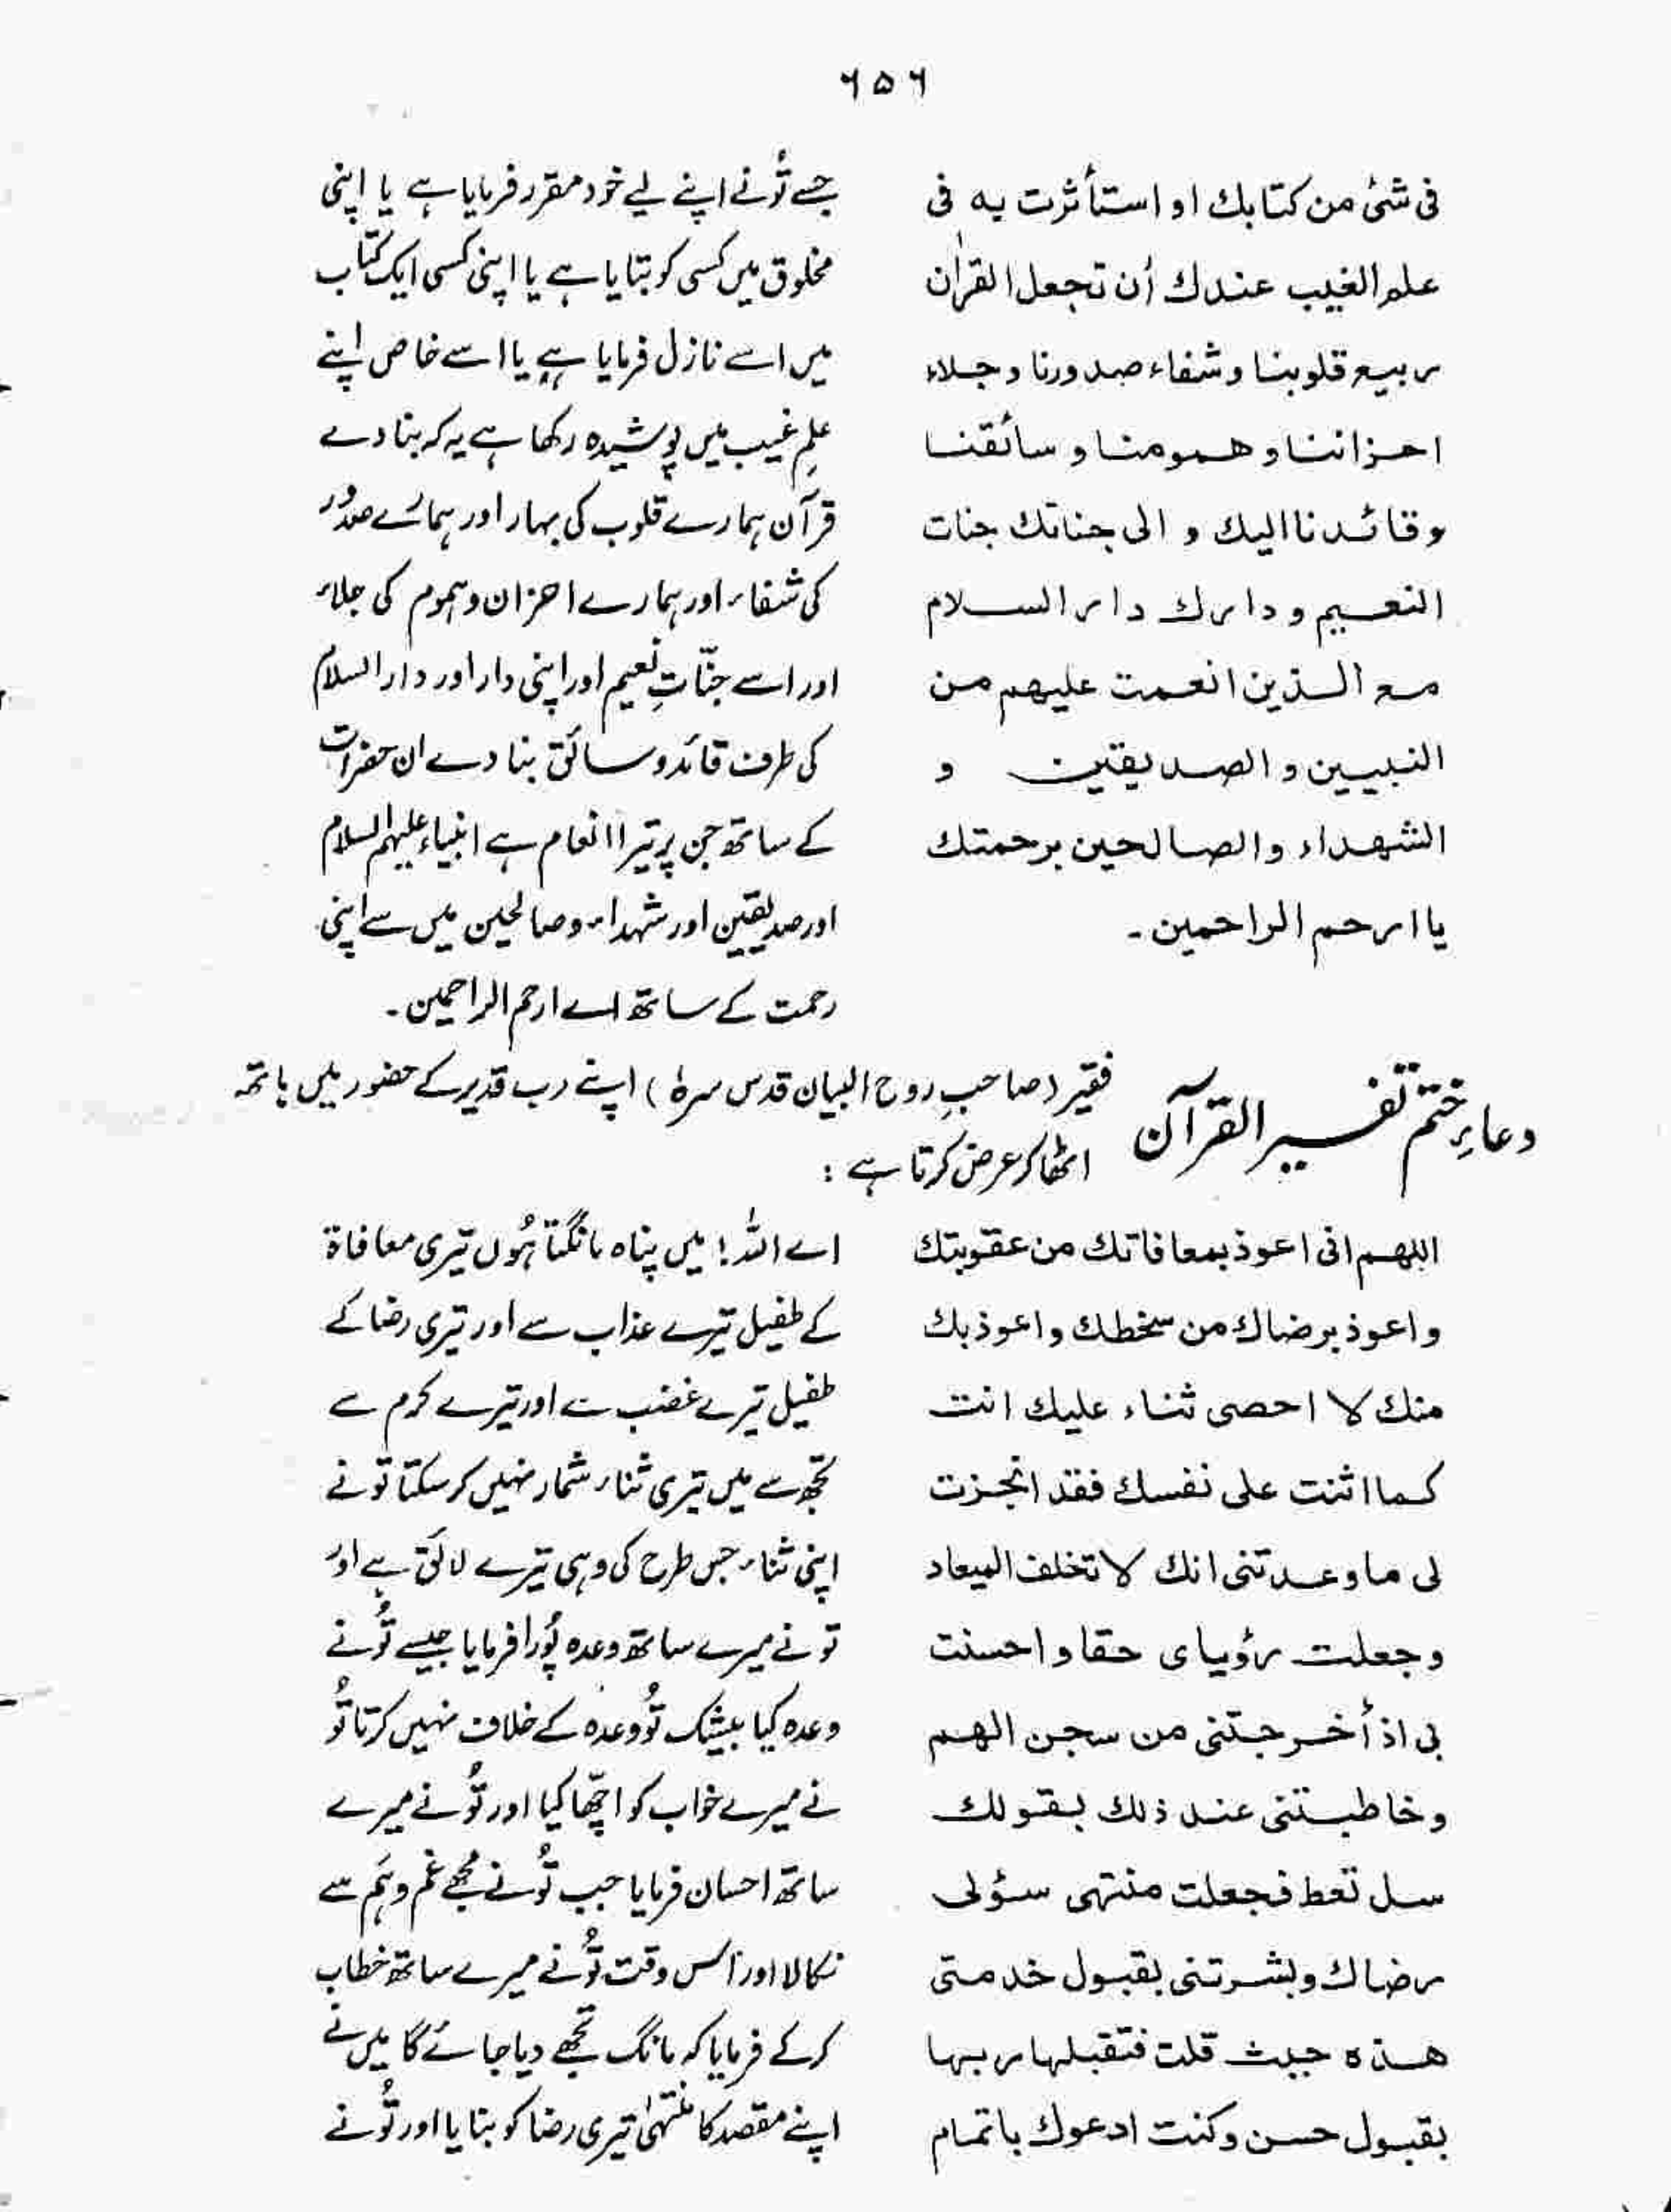 ۶۵۶
فی شئ من کتابك او استأثرت به فی
علم الغیب عندك أن تجعل القرآن
ربیع قلوبنا و شفاء صدورنا و جلاء
احزاننا و همومنا و سائقنا
و قائدنا الیك و الی جناتك جنات
النعیم و دارك دار السلام
مع الذین انعمت علیهم من
النبیین و الصدیقین و
الشهداء و الصالحین برحمتك
یا ارحم الراحمین۔
جسے تُو نے اپنے لیے خود مقرر فرمایا ہے یا اپنی
مخلوق میں کسی کو بتایا ہے یا اپنی کسی ایک کتاب
میں اسے نازل فرمایا ہے یا اسے خاص اپنے
علمِ غیب میں پوشیدہ رکھا ہے یہ کہ بنا دے
قرآن ہمارے قلوب کی بہار اور ہمارے صدور
کی شفاء اور ہمارے احزان و ہموم کی جلاء
اور اسے جنّاتِ نعیم اور اپنی دار اور دار السلام
کی طرف قائد و سائق بنا دے ان حضرات
کے ساتھ جن پر تیرا انعام ہے انبیاء علیہم السلام
اور صدیقین اور شہداء و صالحین میں سے اپنی
رحمت کے ساتھ اے ارحم الراحمین۔
دعاءِ ختم تفسیر القرآن
فقیر (صاحبِ روح البیان قدس سرہٗ) اپنے رب قدیر کے حضور میں ہاتھ
اٹھا کر عرض کرتا ہے :
اللهم انی اعوذ بمعافاتك من عقوبتك
و اعوذ برضاك من سخطك و اعوذ بك
منك لا احصی ثناء علیك انت
کما اثنت علی نفسك فقد انجزت
لی ما وعدتنی انك لا تخلف المیعاد
و جعلت رؤیای حقا و احسنت
بی اذ أخرجتنی من سجن الهم
و خاطبتنی عند ذلك بقولك
سل تعط فجعلت منتهی سؤلی
رضاك و بشرتنی بقبول خدمتی
هذه حیث قلت فتقبلها ربها
بقبول حسن و کنت ادعوك باتمام
اے اللہ! میں پناہ مانگتا ہُوں تیری معافاۃ
کے طفیل تیرے عذاب سے اور تیری رضا کے
طفیل تیرے غضب سے اور تیرے کرم سے
تجھ سے میں تیری ثناء شمار نہیں کر سکتا تو نے
اپنی ثناء جس طرح کی وہی تیرے لائق ہے اور
تو نے میرے ساتھ وعدہ پُورا فرمایا جیسے تُو نے
وعدہ کیا بیشک تُو وعدہ کے خلاف نہیں کرتا تُو
نے میرے خواب کو اچھا کیا اور تُو نے میرے
ساتھ احسان فرمایا جب تُو نے مُجھے غم و ہم سے
نکالا اور اس وقت تُو نے میرے ساتھ خطاب
کر کے فرمایا کہ مانگ تجھے دیا جائے گا میں نے
اپنے مقصد کا منتہیٰ تیری رضا کو بنایا اور تُو نے